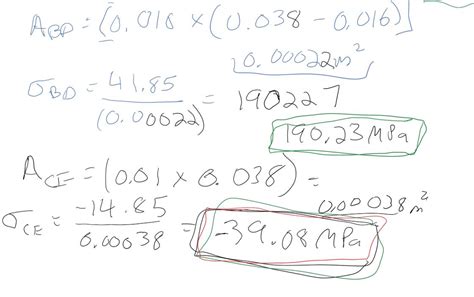 A_BD = [0.010 × (0.038 - 0.016)]
0.00022 m²
σ_BD = 41.85 / (0.00022) = 190227
190.23 MPa
A_CE = (0.01 × 0.038) =
0.00038 m²
σ_CE = -14.85 / 0.00038 = -39.08 MPa